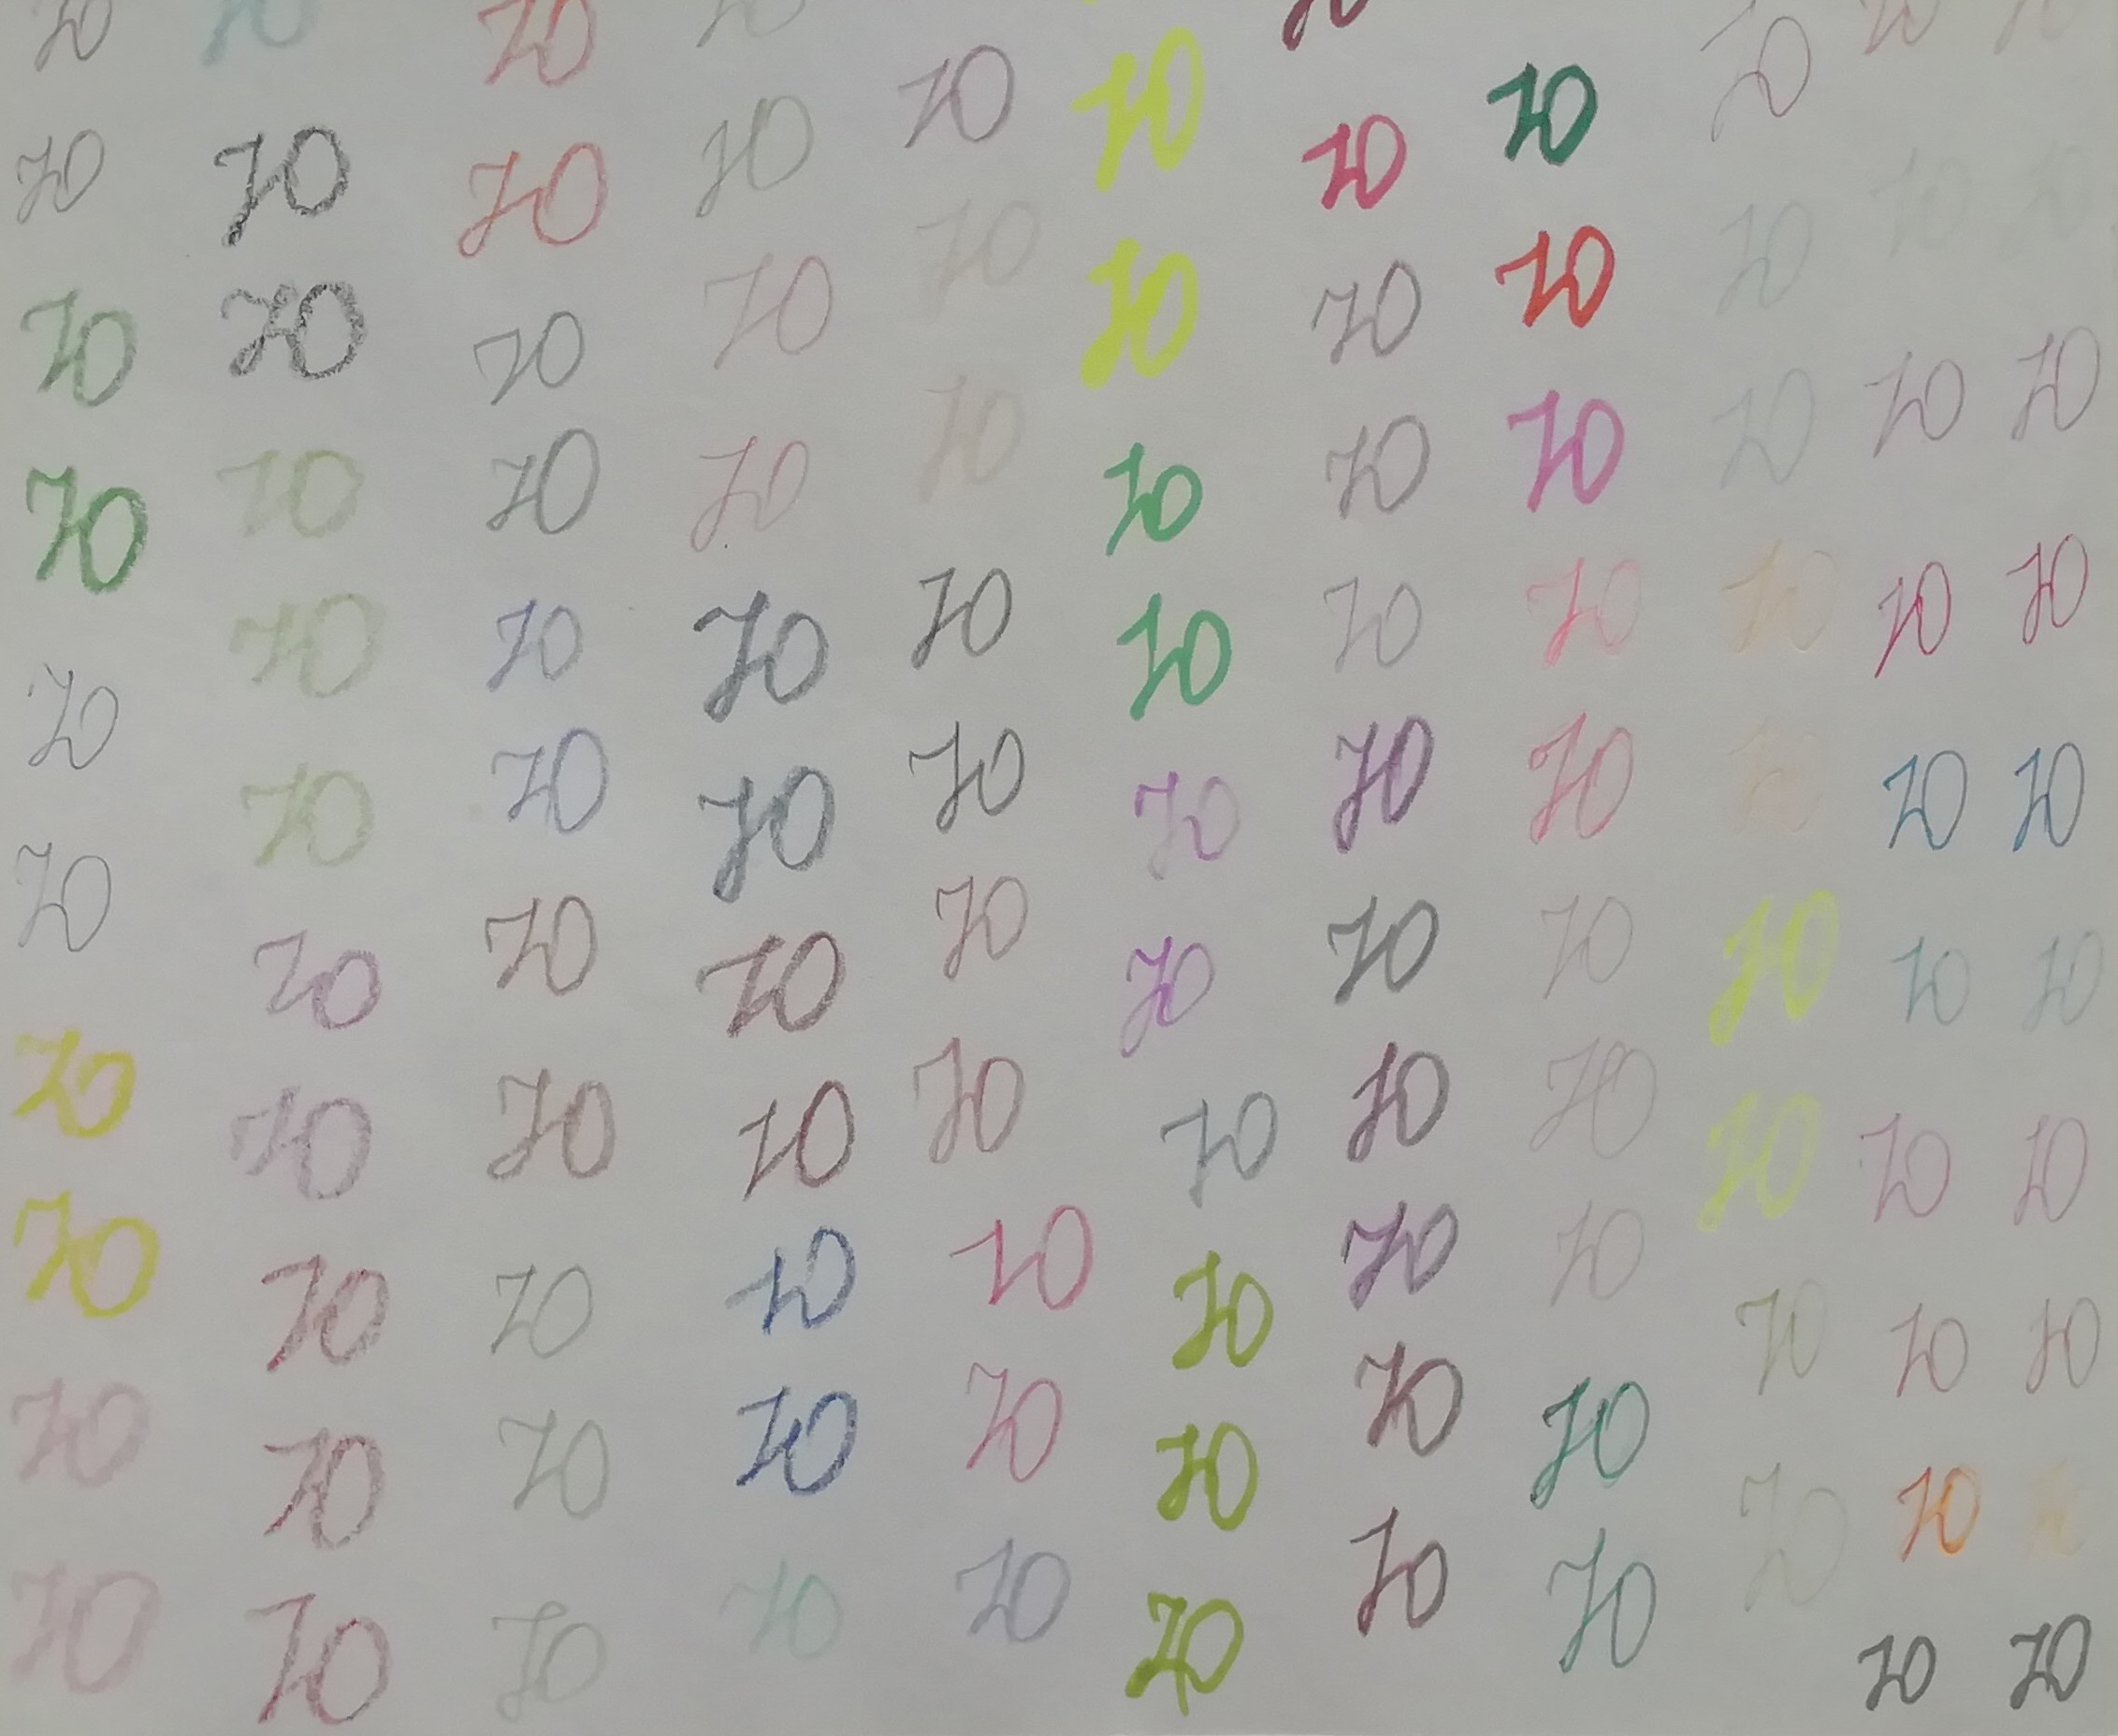 70 70 70 70 70 70 70 70 70 70 70
70 70 70 70 70 70 70 70 70 70 70
70 70 70 70 70 70 70 70 70 70 70
70 70 70 70 70 70 70 70 70 70 70
70 70 70 70 70 70 70 70 70 70 70
70 70 70 70 70 70 70 70 70 70 70
70 70 70 70 70 70 70 70 70 70 70
70 70 70 70 70 70 70 70 70 70 70
70 70 70 70 70 70 70 70 70 70 70
70 70 70 70 70 70 70 70 70 70
70 70 70 70